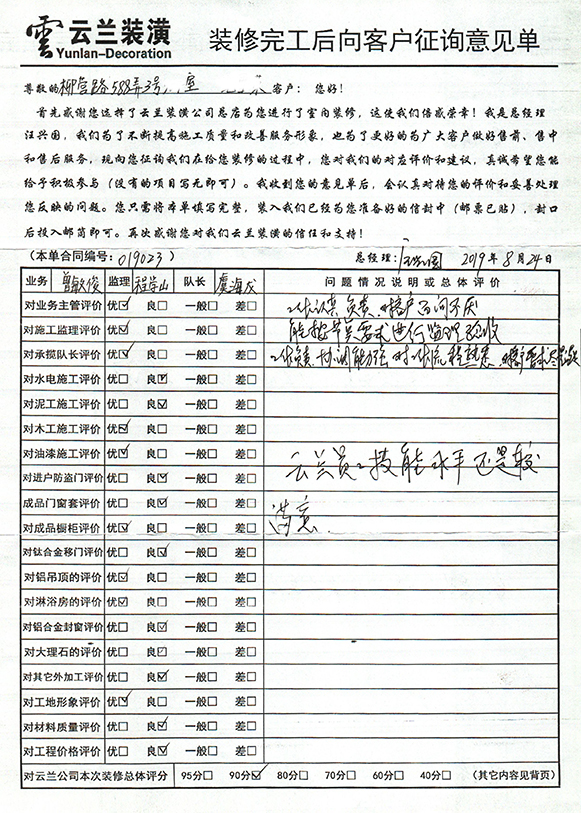 雲 云兰装潢
Yunlan-Decoration
装修完工后向客户征询意见单
尊敬的柳营路588弄3号 室 客户： 您好！
首先感谢您选择了云兰装潢公司总店为您进行了室内装修，这使我们倍感荣幸！我是总经理
汪兴国，我们为了不断提高施工质量和改善服务形象，也为了更好的为广大客户做好售前、售中
和售后服务，现向您征询我们在给您装修的过程中，您对我们的对应评价和建议，真诚希望您能
给予积极参与（没有的项目写无即可）。我收到您的意见单后，会认真对待您的评价和妥善处理
您反映的问题。您只需将本单填写完整，装入我们已经为您准备好的信封中（邮票已贴），封口
后投入邮筒即可。再次感谢您对我们云兰装潢的信任和支持！
（本单合同编号：019023） 总经理：汪兴国 2019年8月24日
业务 曾敏俊 监理 程学山 队长 虞海龙 问题情况说明或总体评价
对业务主管评价 优☑ 良□ 一般□ 差□ 工作认真负责，对客户百问不厌
对施工监理评价 优☑ 良□ 一般□ 差□ 能按节点要求进行监理验收
对承揽队长评价 优☑ 良□ 一般□ 差□ 工作负责，协调能力强，对工作流程熟悉，
对水电施工评价 优□ 良☑ 一般□ 差□
对泥工施工评价 优□ 良☑ 一般□ 差□
对木工施工评价 优☑ 良□ 一般□ 差□
对油漆施工评价 优☑ 良□ 一般□ 差□ 云兰员工技能水平还是较
对进户防盗门评价 优□ 良☑ 一般□ 差□
成品门窗套评价 优□ 良☑ 一般□ 差□ 满意.
对成品橱柜评价 优☑ 良□ 一般□ 差□
对钛合金移门评价 优□ 良☑ 一般□ 差□
对铝吊顶的评价 优☑ 良□ 一般□ 差□
对淋浴房的评价 优☑ 良□ 一般□ 差□
对铝合金封窗评价 优□ 良☑ 一般□ 差□
对大理石的评价 优□ 良☑ 一般□ 差□
对其它外加工评价 优□ 良☑ 一般□ 差□
对工地形象评价 优☑ 良□ 一般□ 差□
对材料质量评价 优□ 良☑ 一般□ 差□
对工程价格评价 优□ 良☑ 一般□ 差□
对云兰公司本次装修总体评分 95分□ 90分☑ 80分□ 70分□ 60分□ 40分□ （其它内容见背页）